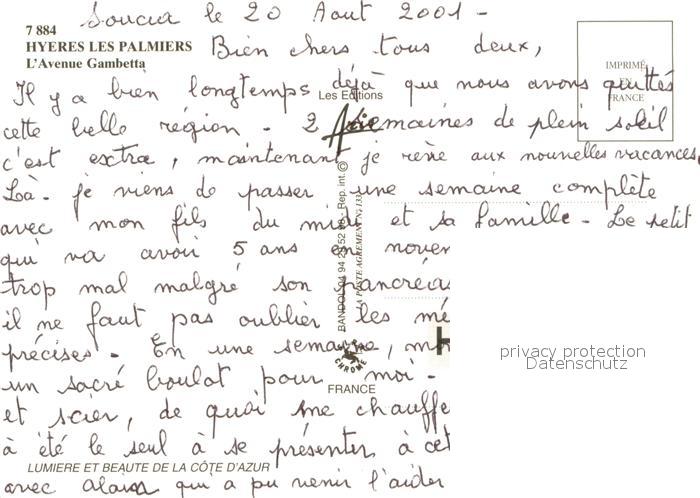 Soucia le 20 Aout 2001 -
7 884
HYERES LES PALMIERS
L'Avenue Gambetta
Bien chers tous deux,
IMPRIMÉ
EN
FRANCE
Il y a bien longtemps déjà que nous avons quittés
Les Editions
cette belle région - 2 semaines de plein soleil
c'est extra, maintenant je rêve aux nouvelles vacances.
Là - je viens de passer une semaine complète
avec mon fils du midi et sa famille - Le petit
qui va avoir 5 ans en novem
trop mal malgré son pancréas
il ne faut pas oublier les mé
précises - En une semaine, m
un sacré boulot pour moi -
et scier, de quoi me chauffe
à été le seul à se présenter à cet
avec Alain qui a pu venir l'aider
BANDOL 04 94 29 52 26 - Rep. int. ©
LA POSTE AGREMENT N°
CHROME
FRANCE
LUMIERE ET BEAUTE DE LA CÔTE D'AZUR
privacy protection
Datenschutz